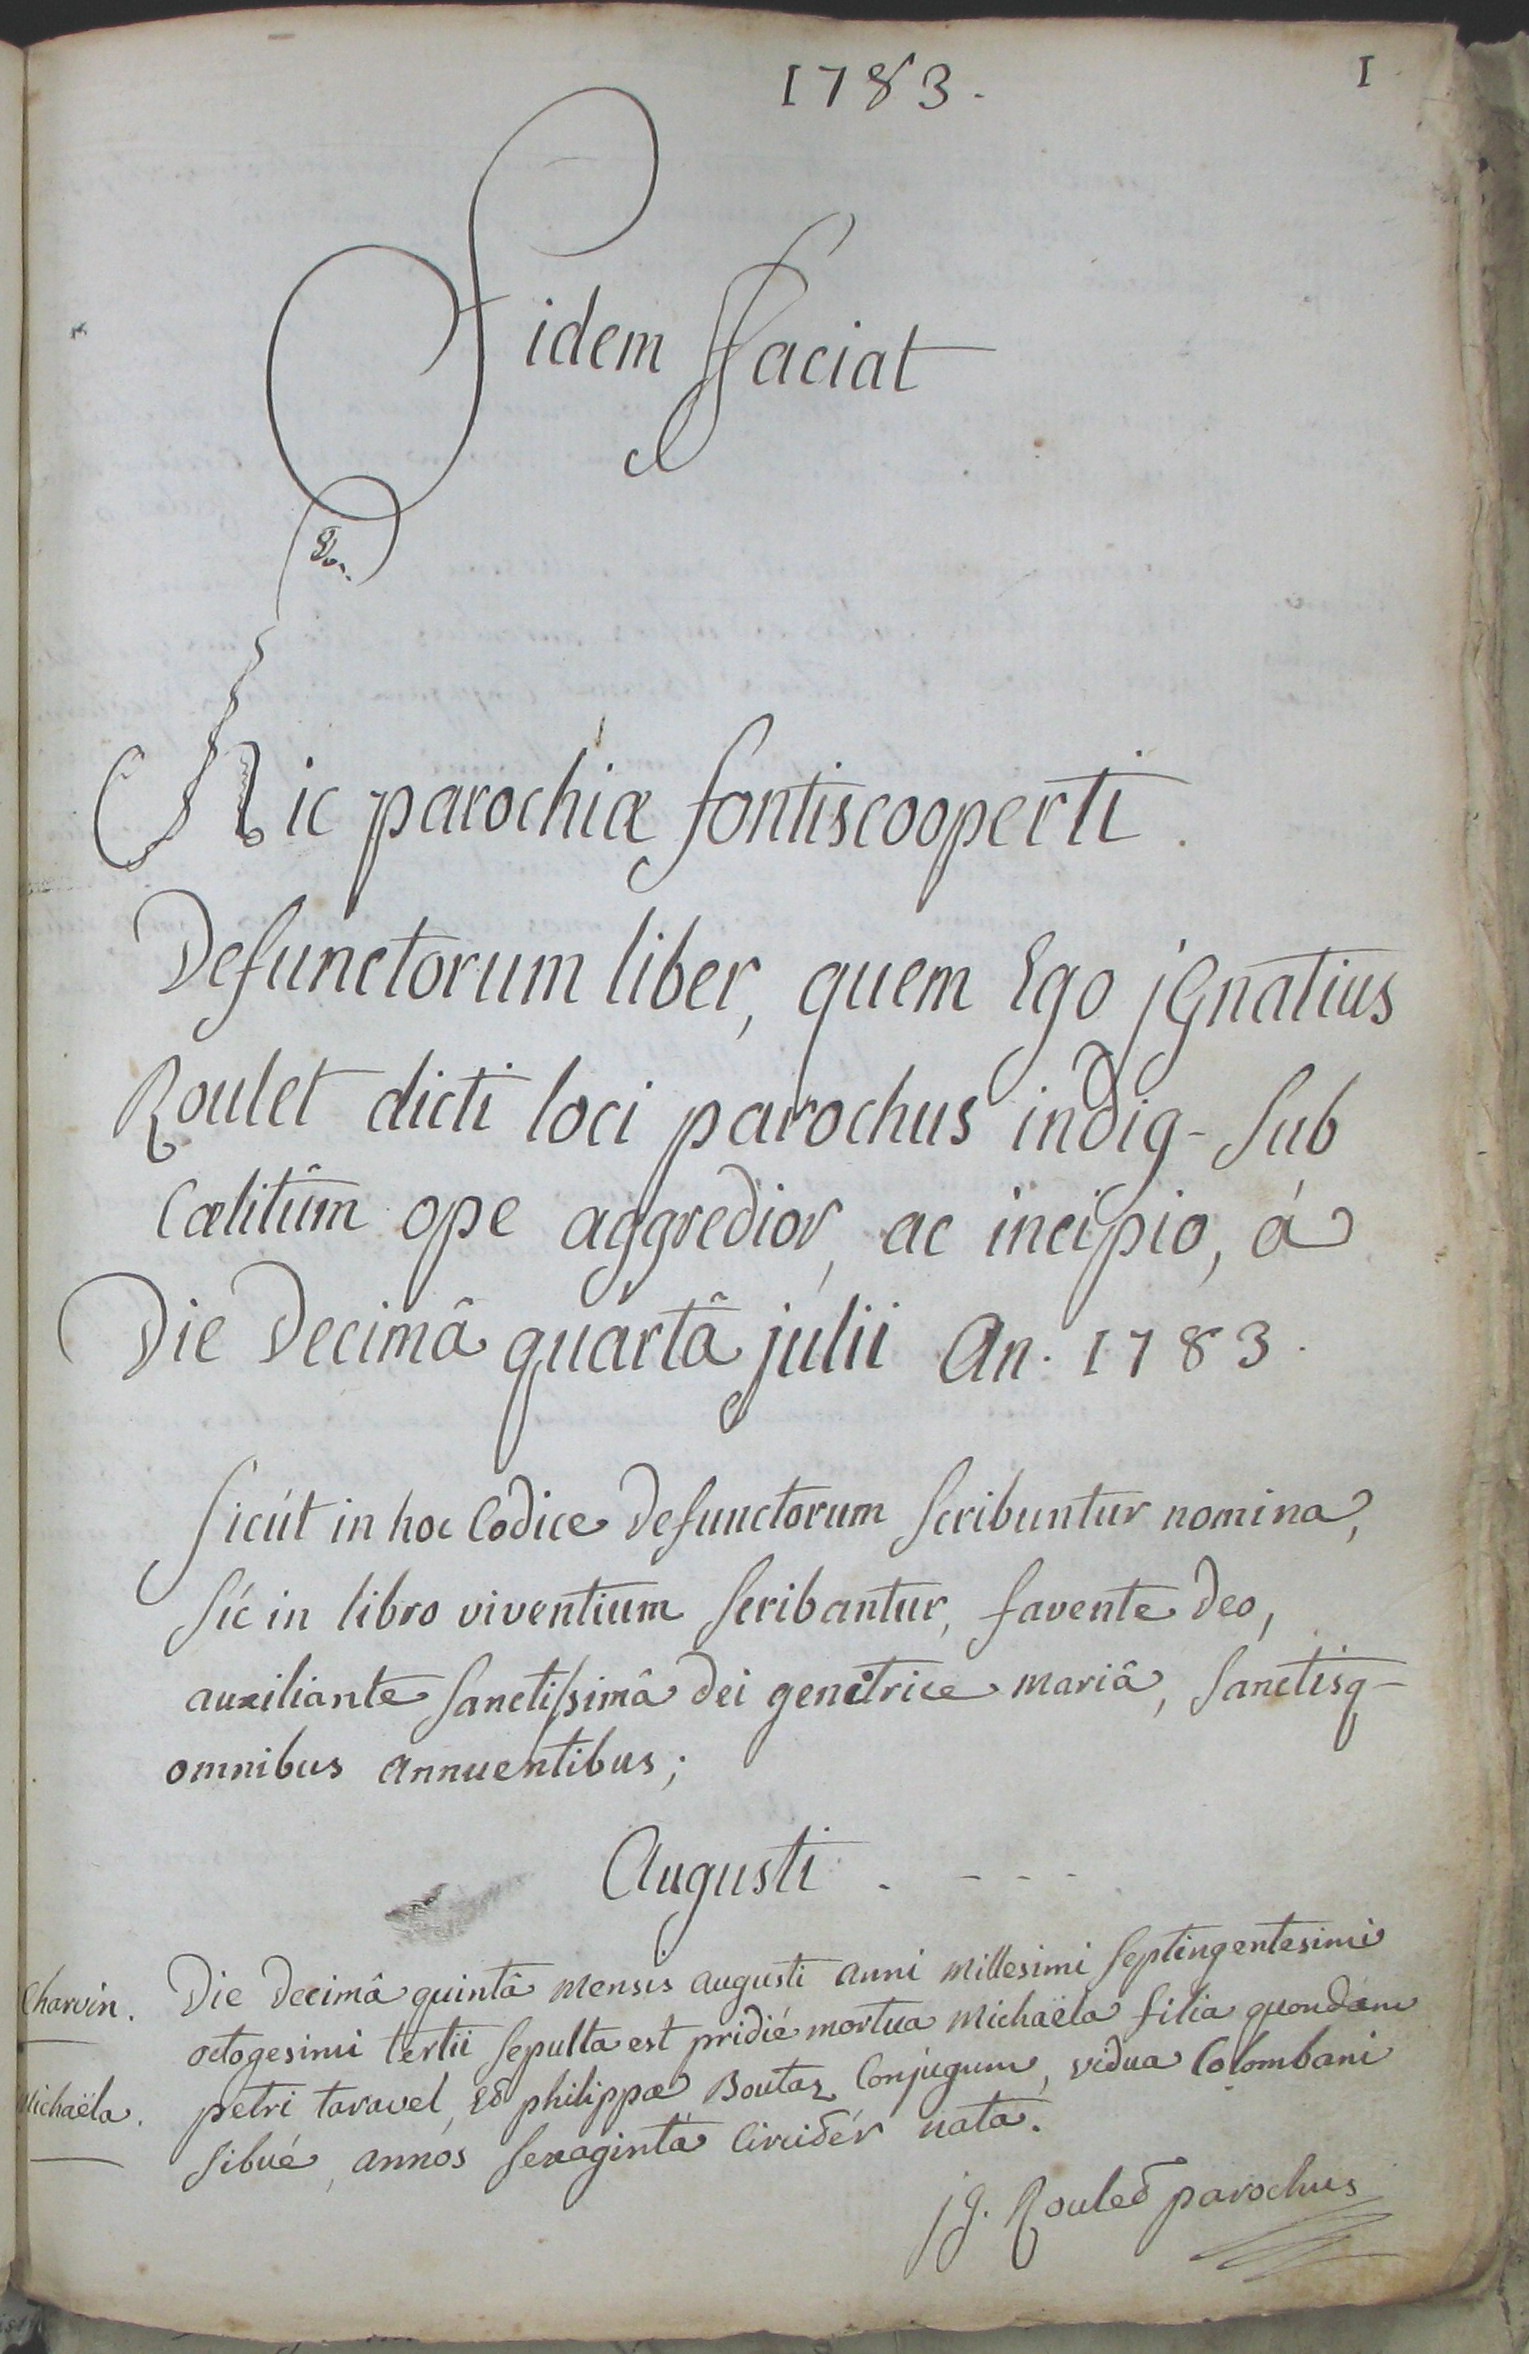 1783.
1
Fidem faciat
Hic parochiæ fontiscooperti.
Defunctorum liber, quem Ego jGnatius
Roulet dicti loci parochus indig- sub
Cælitûm ope aggredior, ac incipio, á
Die Decimâ quartâ julii An. 1783.
Sicút in hoc Codice Defunctorum scribuntur nomina,
síc in libro viventium scribantur, favente deo,
auxiliante sanctissimâ dei genitrice mariâ, sanctisq-
omnibus annuentibus;
Augusti. - - -
Charvin. Die decimâ quintâ mensis augusti anni millesimi septingentesimi
octogesimi tertii sepulta est pridié mortua Michaëla filia quondám
Michaëla. petri taravel, Et philippæ Boutaz Conjugum, vidua Colombani
sibué, annós sexaginta Circitér nata.
jg. Roulet parochus